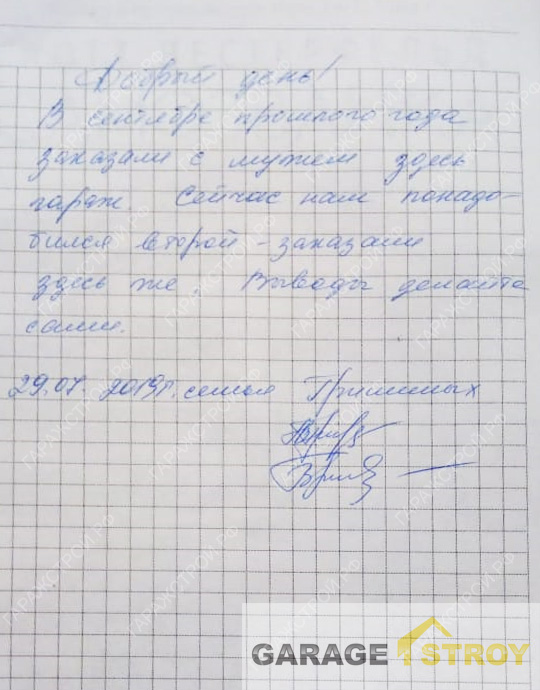 Добрый день!
В сентябре прошлого года
заказали с мужем здесь
гараж. Сейчас нам понадо-
бился второй - заказали
здесь же. Выводы делайте
сами.
29.07.2019г. семья Гришиных
GARAGE STROY
ГАРАЖСТРОЙ.РФ